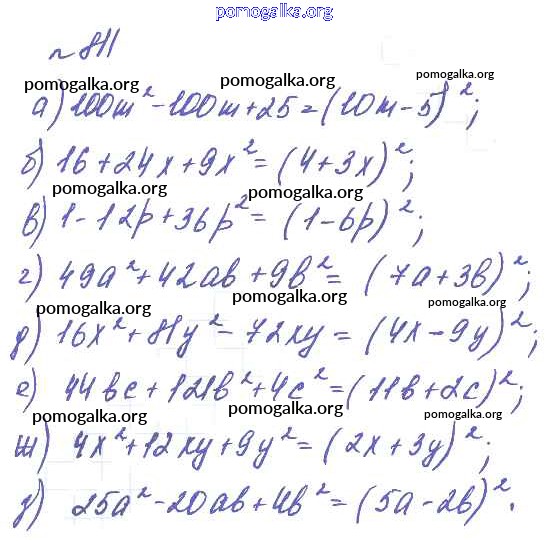 pomogalka.org
№ 811
pomogalka.org pomogalka.org pomogalka.org
а) 100m² - 100m + 25 = (10m - 5)²;
pomogalka.org pomogalka.org pomogalka.org
б) 16 + 24x + 9x² = (4 + 3x)²;
pomogalka.org pomogalka.org
в) 1 - 12p + 36p² = (1 - 6p)²;
г) 49a² + 42ab + 9b² = (7a + 3b)²;
pomogalka.org pomogalka.org pomogalka.org
д) 16x² + 81y² - 72xy = (4x - 9y)²;
е) 44bc + 121b² + 4c² = (11b + 2c)²;
pomogalka.org pomogalka.org pomogalka.org
ж) 4x² + 12xy + 9y² = (2x + 3y)²;
з) 25a² - 20ab + 4b² = (5a - 2b)².